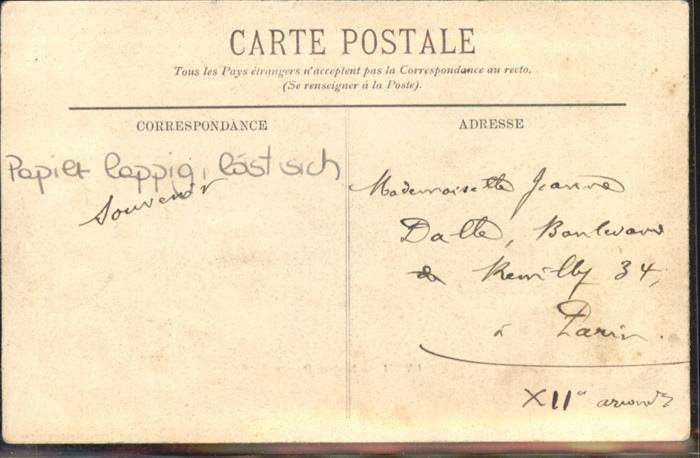 CARTE POSTALE
Tous les Pays étrangers n'acceptent pas la Correspondance au recto.
(Se renseigner à la Poste).
CORRESPONDANCE
ADRESSE
Papier lappig, löst sich
Souvenir
Mademoiselle Jeanne
Dalte, Boulevard
de Reuilly 34,
à Paris.
XII